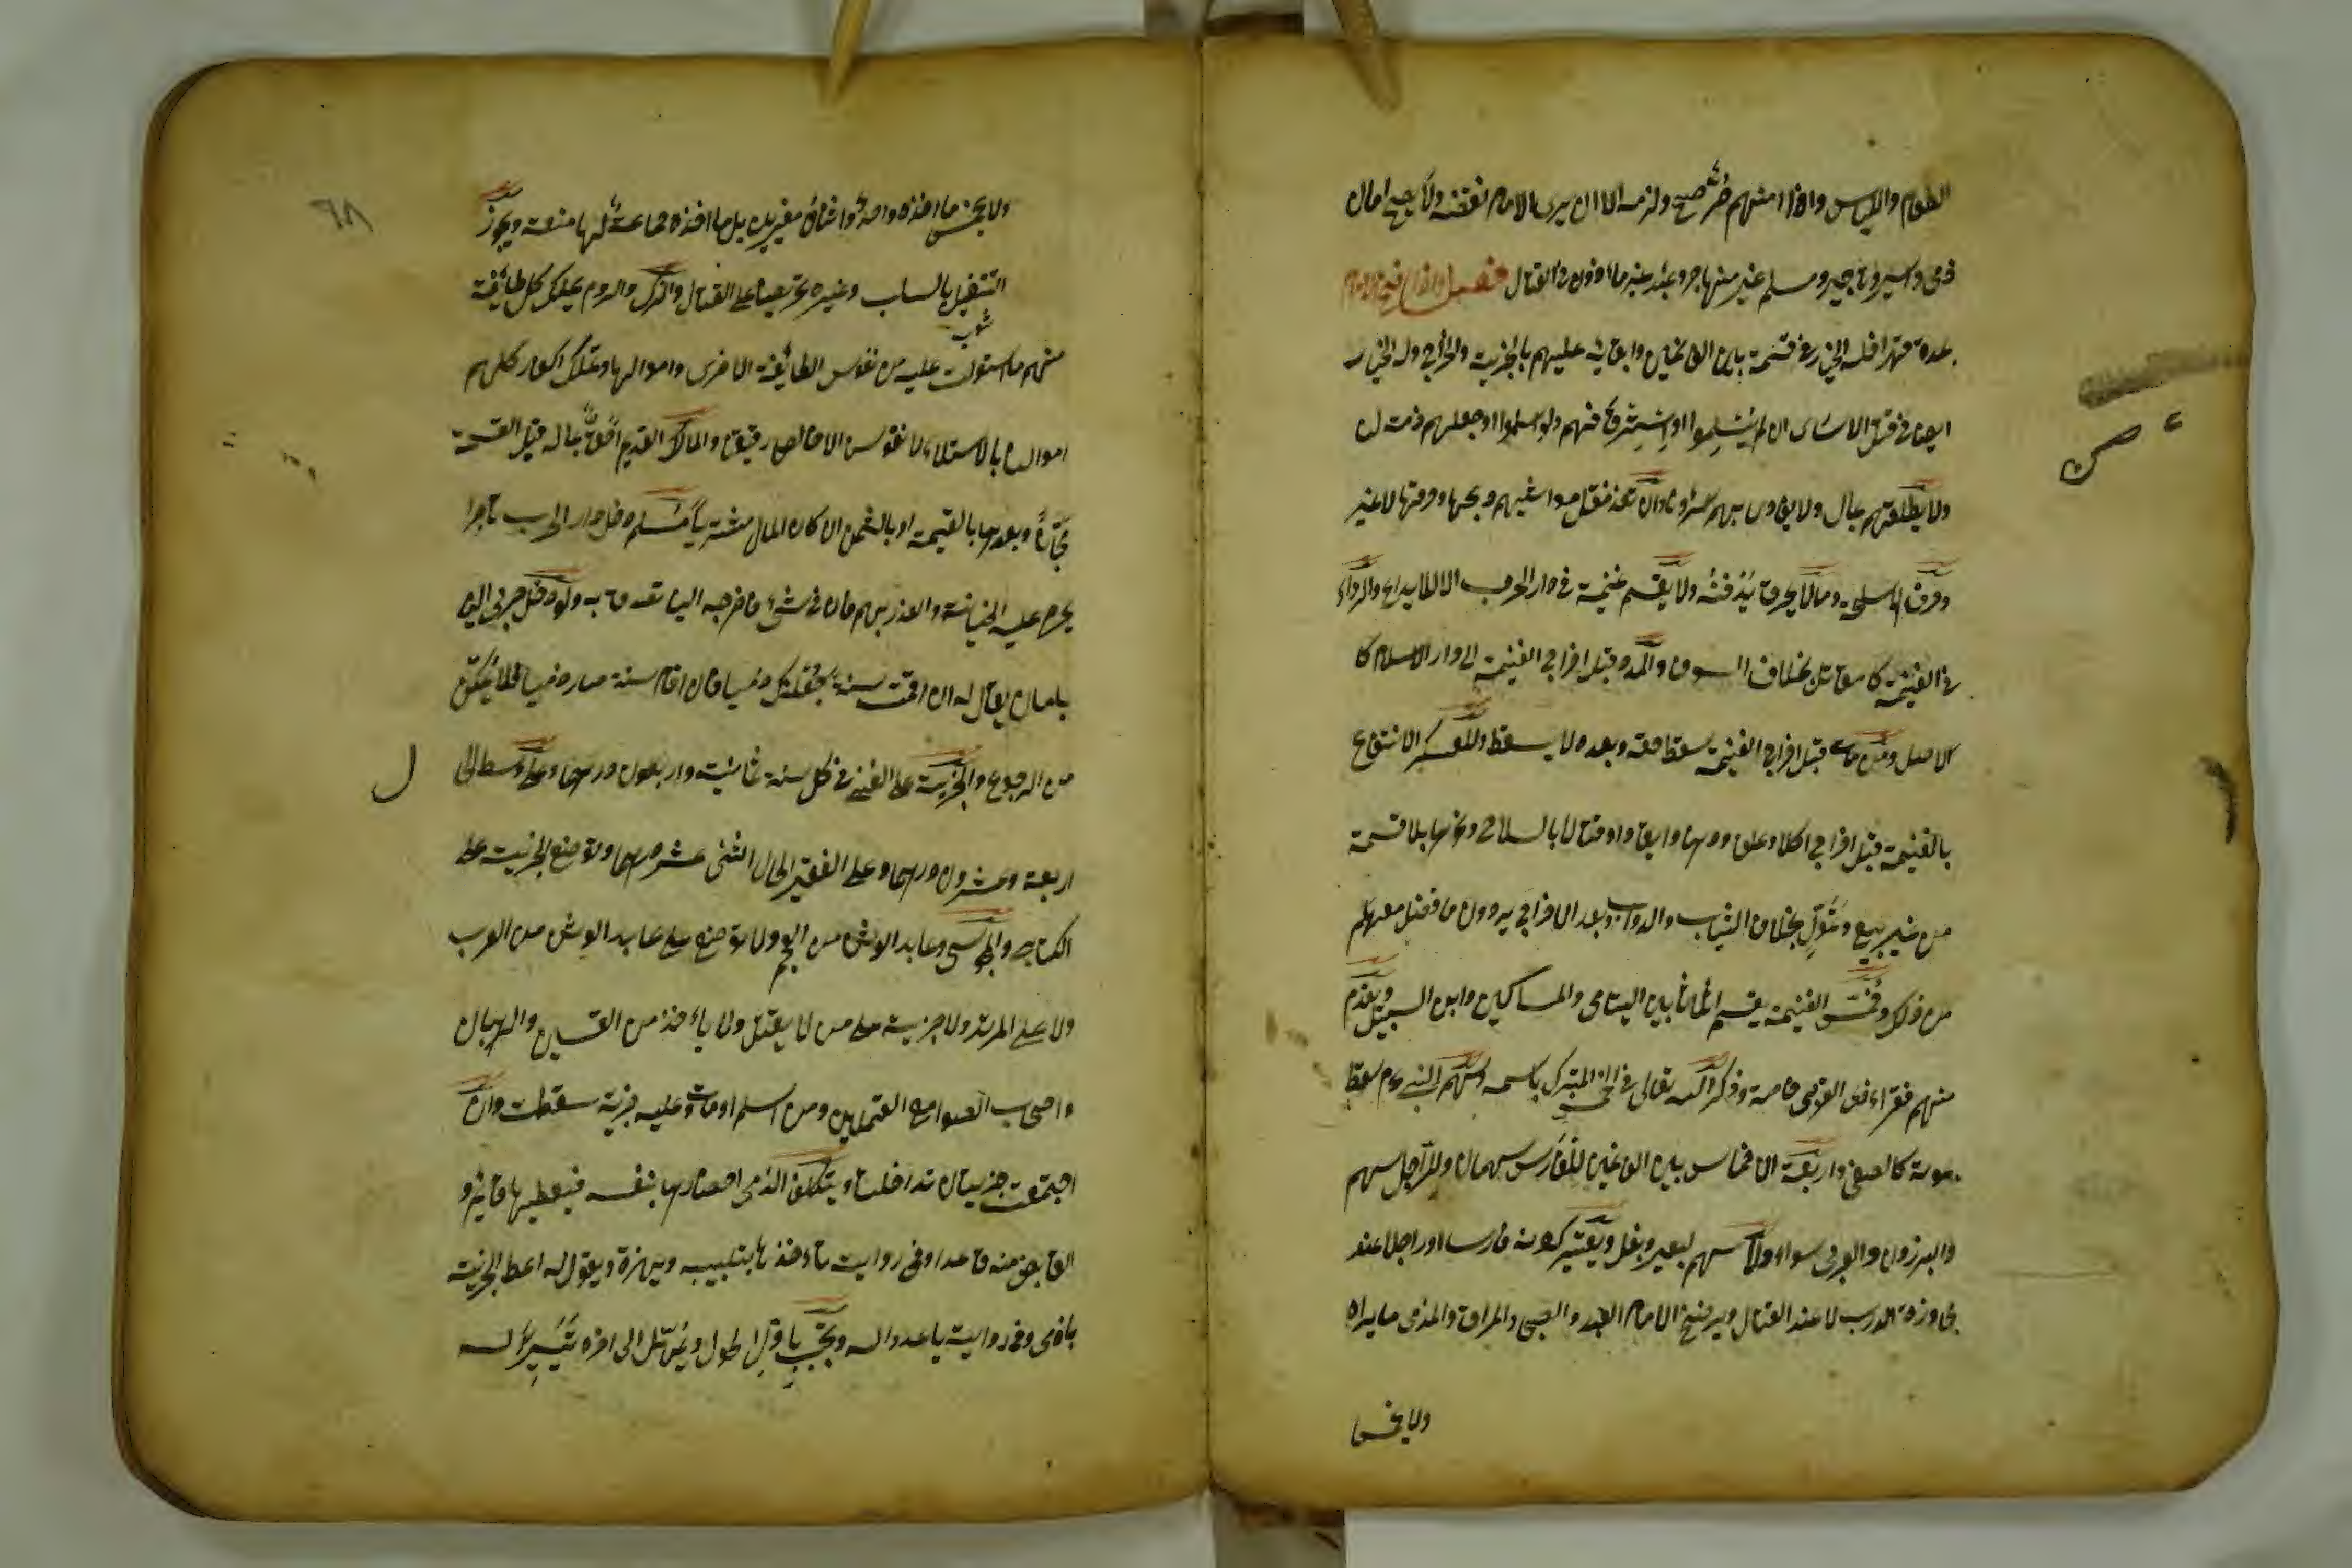 الطعام واللباس واذا امنهم حر صح ولزم الا ان يرى الامام نقضه ولا يصح امان
ذمى واسير وتاجر ومسلم غير مهاجر وعبد غير مأذون فى القتال فصل واذا فتح الامام
بلدة قهرا فله الخيار فى قسمته بين الغانمين وابقائه عليهم بالجزية والخراج وله الخيار
ايضا فى قتل الاسارى ان لم يسلموا او استرقاقهم ولو اسلموا او جعلهم ذمة لنا
ولا يطلقهم بمال ولا يفادى بهم اسراء وان تعذر نقل مواشيهم ذبحها وحرقها لا غير
وحرق الاسلحة وما لا يحرق يدفنه ولا يقسم غنيمة فى دار الحرب الا للايداع والردء
فى الغنيمة كالمقاتل بخلاف السوقى والمدد قبل اخراج الغنيمة الى دار الاسلام كا
لاصل ومن مات قبل اخراج الغنيمة يسقط حقه وبعده لا يسقط وللعسكر الانتفاع
بالغنيمة قبل اخراجها اكلا وعلفا ودهنا وايقادا وقتالا بالسلاح ونحوها بلا قسمة
من غير بيع وتمول بخلاف الثياب والدواب وبعد الاخراج يردون ما فضل معهم
من ذلك وخمس الغنيمة يقسم اثلاثا بين اليتامى والمساكين وابن السبيل ويقدم
منهم فقراء ذوى القربى خاصة وذكر الله تعالى فى الخمس للتبرك باسمه وسهم النبى عم سقط
بموته كالصفى واربعة الاخماس بين الغانمين للفارس سهمان وللراجل سهم
والبرذون والعربى سواء ولا سهم لبعير وبغل ويعتبر كونه فارسا او راجلا عند
مجاوزة الدرب لا عند القتال ويرضخ الامام العبد والصبى والمراة والذمى ما يراه
ولا يخمس ما
ولا يخمس ما اخذه واحد واثنان مغيرين بل ما اخذه جماعة لها منعة ويجوز
التنفيل بالسلب وغيره تحريضا على القتال والترك والروم يملك كل طائفة
منهم ما استولت عليه من نفوس الطائفة الاخرى واموالها وتملك الكفار كلهم
اموالنا بالاستيلاء لا نفوسنا الا خالصا رقيقا والمالك القديم احق بماله قبل القسمة
مجانا وبعدها بالقيمة او بالثمن ان كان المال مشتريا مسلم دخل دار الحرب تاجرا
يحرم عليه الخيانة والغدر بهم فان خان فى شئ فاخرجه الينا تصدق به ولو دخل حربى الينا
بامان يقال له ان اقمت سنة نجعلك ذميا فان اقام سنة صار ذميا فلا يمكن
من الرجوع والجزية على الغنى فى كل سنة ثمانية واربعون درهما وعلى وسط الحال
اربعة وعشرون درهما وعلى الفقير الحال اثنى عشر درهما وتوضع الجزية على
الكتابى والمجوسى وعابد الوثن من العجم ولا توضع على عابد الوثن من العرب
ولا على المرتد ولا جزية على من لا يقتل ولا يأخذ من القسيس والرهبان
واصحاب الصوامع المعتملين ومن اسلم او مات وعليه جزية سقطت وان
اجتمعت جزيتان تداخلتا ويتكلف الذمى احضارها بنفسه فيعطيها قائما و
القابض منه قاعدا وفى رواية يأخذها بتلبيبه ويهزه ويقول له اعط الجزية
يا ذمى وفى رواية يا عدو الله وتجب باول الحول ويمهل الى اخره تيسيرا له
٦٨